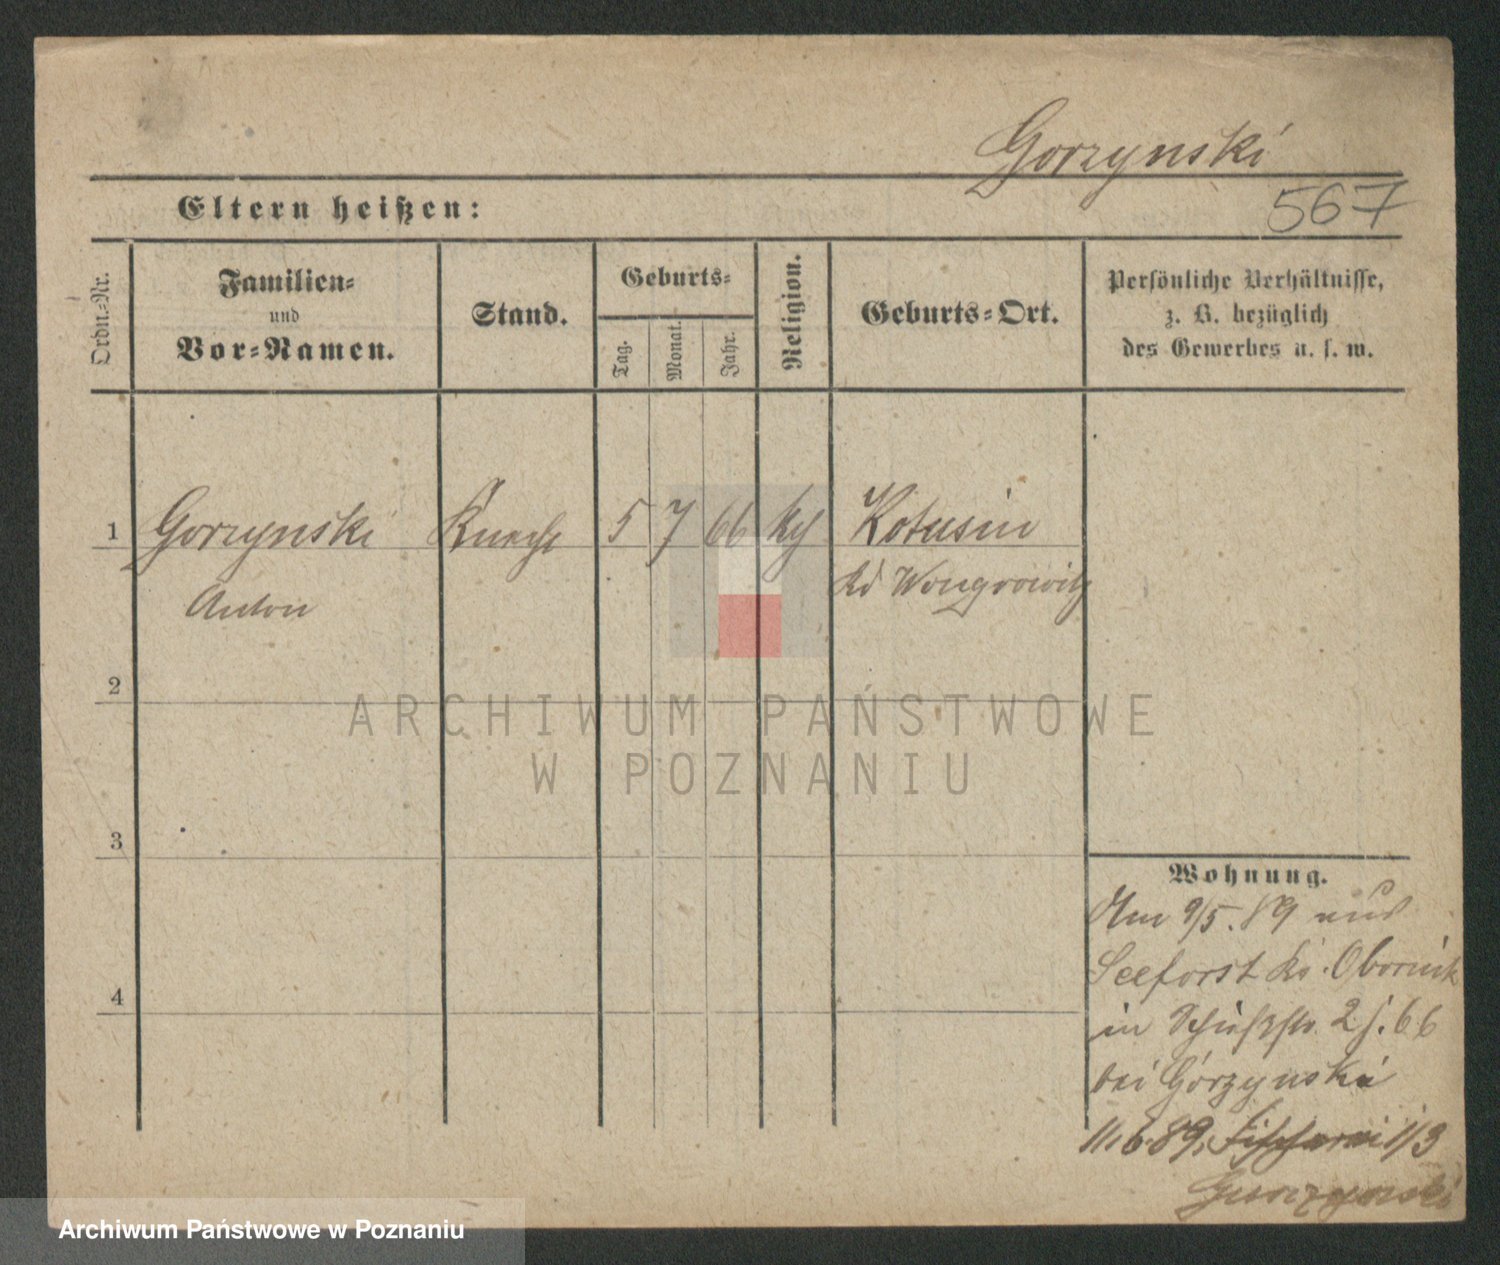 Gorzynski
567
Eltern heißen:
Ordn.-Nr.
Familien-
und
Vor-Namen.
Stand.
Geburts-
Tag.
Monat.
Jahr.
Religion.
Geburts-Ort.
Persönliche Verhältnisse,
z. B. bezüglich
des Gewerbes u. s. w.
1 Gorzynski Knecht 5 7 66 kth Kotusin
Anton Kr Wongrowitz
2
ARCHIWUM PAŃSTWOWE
W POZNANIU
3
4
Wohnung.
Am 9/5.89 aus
Seeforst Kr. Obornik
in Schießstr. 2 j. 66
bei Górzynski
11.6.89. Fischerei 1/3
Gurzynski
Archiwum Państwowe w Poznaniu